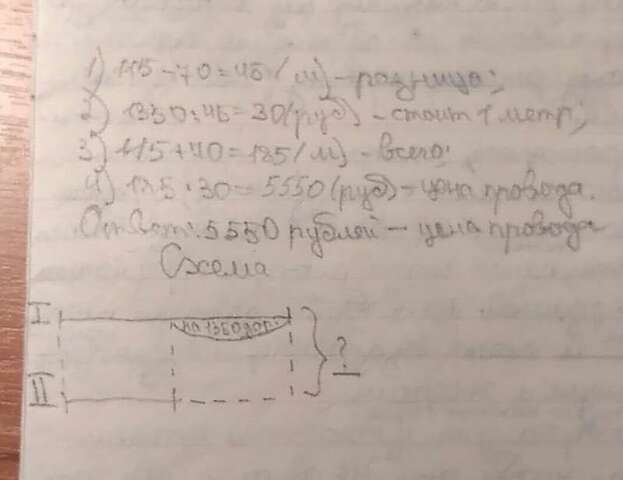 1) 115-70=45(м)-разница;
2) 1350:45=30(руб)-стоит 1 метр;
3) 115+70=185(м)-всего;
4) 185·30=5550(руб)-цена провода.
Ответ: 5550 рублей - цена провода
Схема
I на 1350 дор. ?
II